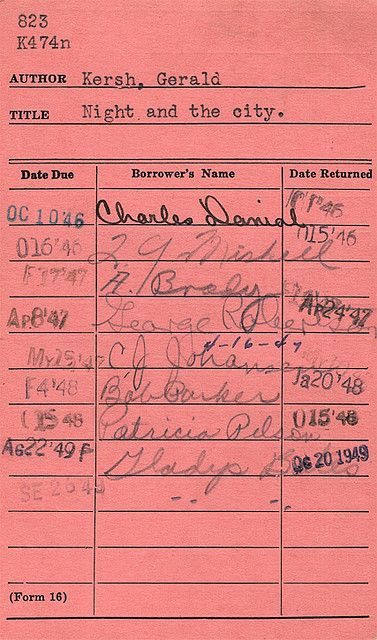 823
K474n
AUTHOR Kersh, Gerald
TITLE Night and the city.
Date Due Borrower's Name Date Returned
OC 10'46 Charles Danial
O16'46 O15'46
F17'47 A. Brady
Ap8'47 George Ap24'47
My15'47 C J 4-16-47
F4'48 Bob Parker Ja20'48
O15 48 Patricia O15'48
AG22'49 F Gladys OC 20 1949
SE 26 49
(Form 16)